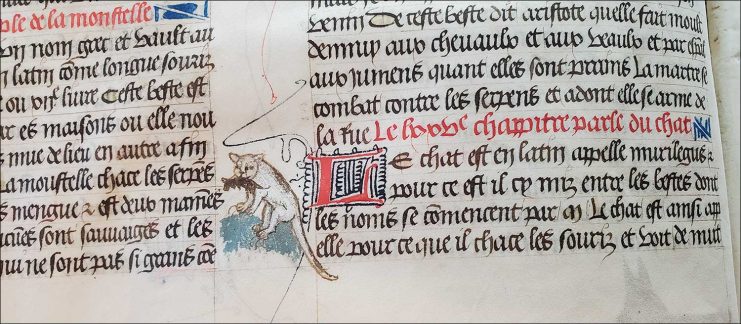 ple de la monstelle
nom grec et vault au
latin cõme longue souriz
ou livre Ceste beste est
es maisons ou elle nou
mue de lieu en autre afin
La moustelle chace les serpẽs
mengue et est deux maniẽs
sont sauvaiges et les
qui ne sont pas si grans cõe
venin De ceste beste dit aristote quelle fait moult
dennuy aux chevaulx et aux veaulx et par
aux jumens quant elles sont prains La martre se
combat contre les serpens et adont elle se arme de
la rue Le chappitre parle du chat
Le chat est en latin appelle murilegus
pour ce est il cy miz entre les bestes dont
les noms se cõmencent par m Le chat est ainsi app
elle pour ce que il chace les souriz et voit de nuit